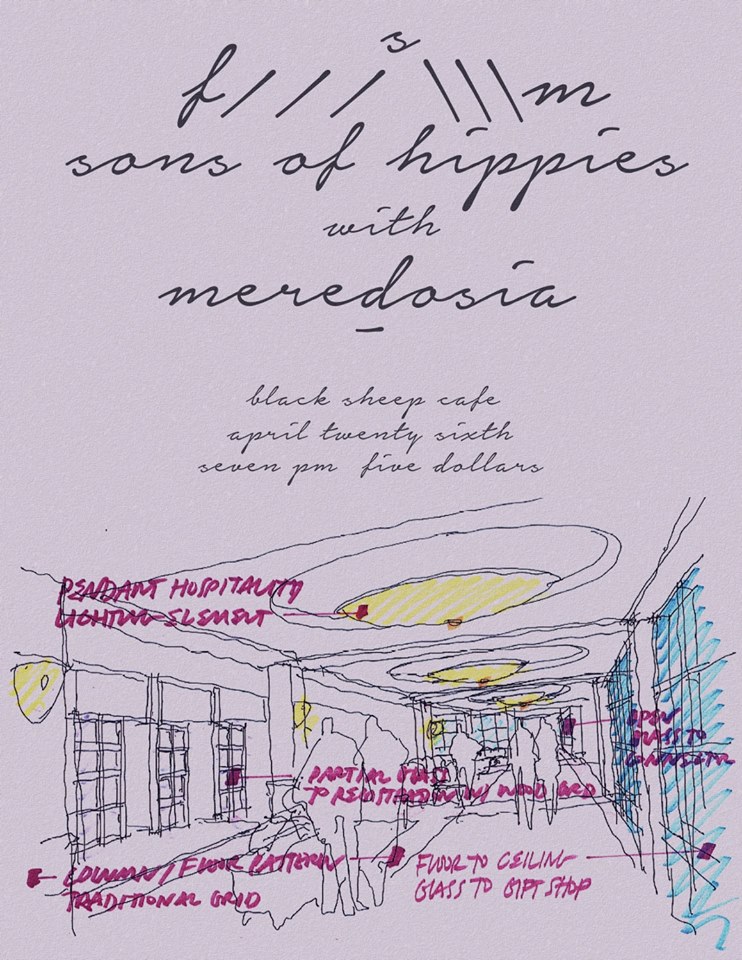 s
f///\\\m
sons of hippies
with
meredosia
black sheep cafe
april twenty sixth
seven pm five dollars
PENDANT HOSPITALITY
LIGHTING ELEMENT
OPEN
GLASS TO
CONNECTOR
PARTIAL GLASS
TO REGISTRATION W/ WOOD GRID
COLUMN / FLOOR PATTERN
TRADITIONAL GRID
FLOOR TO CEILING
GLASS TO GIFT SHOP